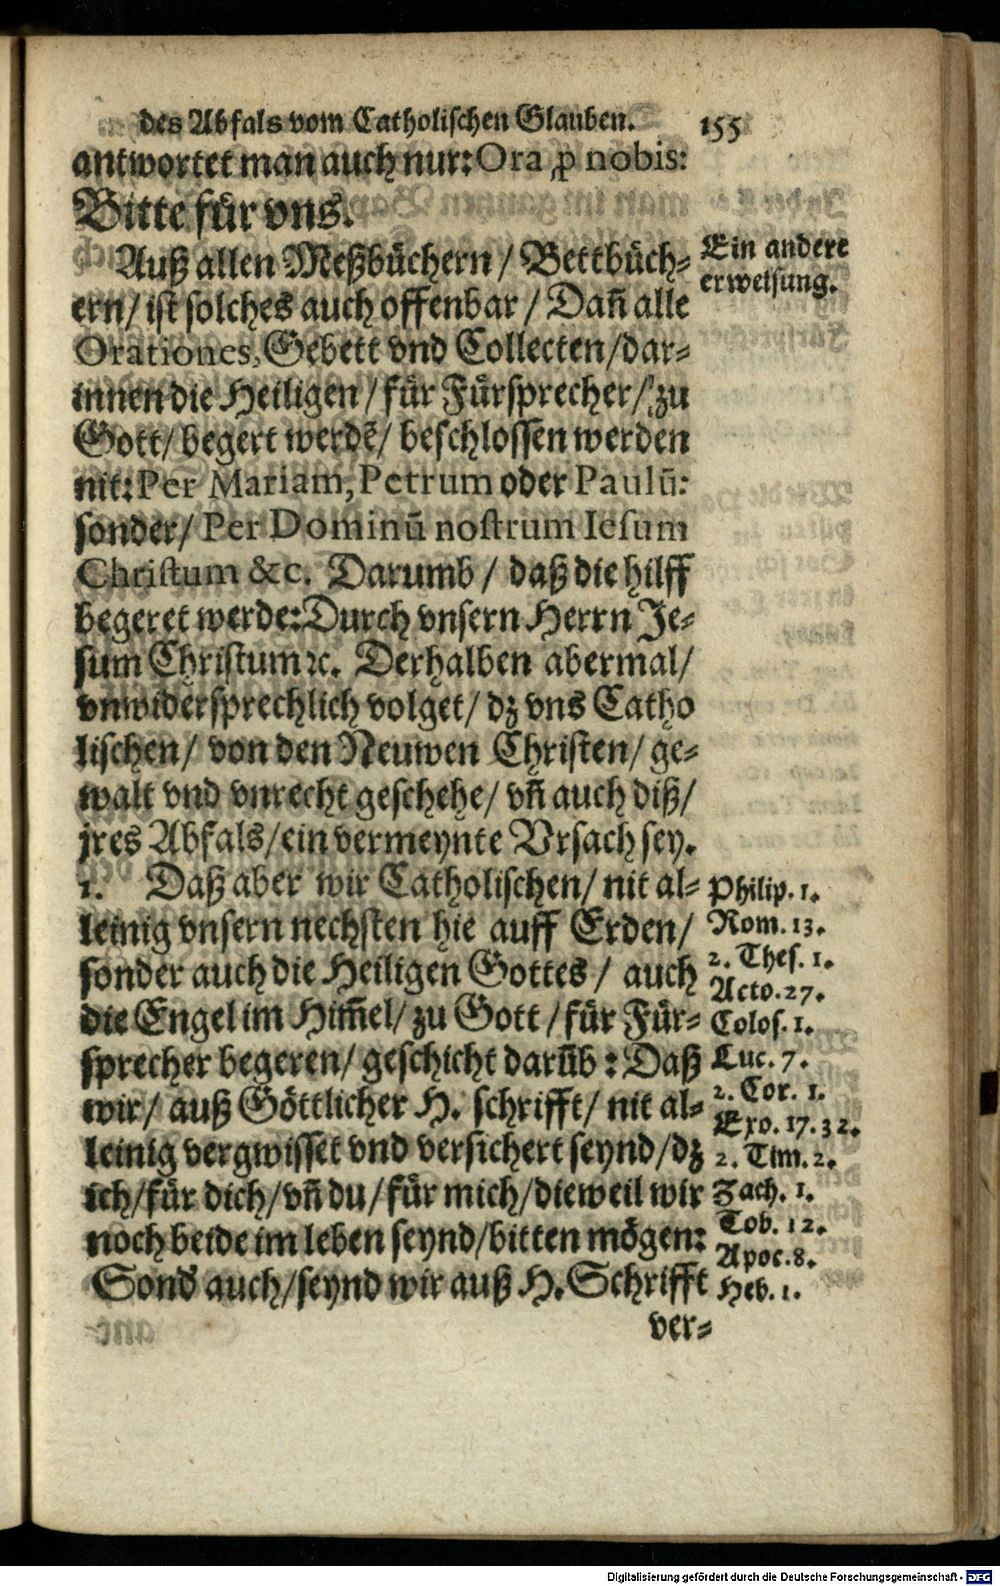 des Abfals vom Catholischen Glauben. 155
antwortet man auch nur: Ora ꝓ nobis:
Bitte für vns.
Auß allen Meßbüchern / Bettbüch⸗
ern / ist solches auch offenbar / Dañ alle
Orationes, Gebett vnd Collecten / dar⸗
innen die Heiligen / für Fürsprecher / zu
Gott / begert werdẽ / beschlossen werden
nit: Per Mariam, Petrum oder Paulũ:
sonder / Per Dominũ nostrum Iesum
Christum &c. Darumb / daß die hilff
begeret werde: Durch vnsern Herrn Je⸗
sum Christum ꝛc. Derhalben abermal /
vnwidersprechlich volget / dz vns Catho
lischen / von den Neuwen Christen / ge⸗
walt vnd vnrecht geschehe / vñ auch diß /
jres Abfals / ein vermeynte Vrsach sey.
1. Daß aber wir Catholischen / nit al⸗
leinig vnsern nechsten hie auff Erden /
sonder auch die Heiligen Gottes / auch
die Engel im Him̃el / zu Gott / für Für⸗
sprecher begeren / geschicht darũb : Daß
wir / auß Göttlicher H. schrifft / nit al⸗
leinig vergwisset vnd versichert seynd / dz
ich / für dich / vñ du / für mich / dieweil wir
noch beide im leben seynd / bitten mögen:
Sond auch / seynd wir auß H. Schrifft
ver⸗
Ein andere
erweisung.
Philip. 1.
Rom. 13.
2. Thes. 1.
Acto. 27.
Colos. 1.
Luc. 7.
2. Cor. 1.
Exo. 17. 32.
2. Tim. 2.
Zach. 1.
Tob. 12.
Apoc. 8.
Heb. 1.
Digitalisierung gefördert durch die Deutsche Forschungsgemeinschaft - DFG